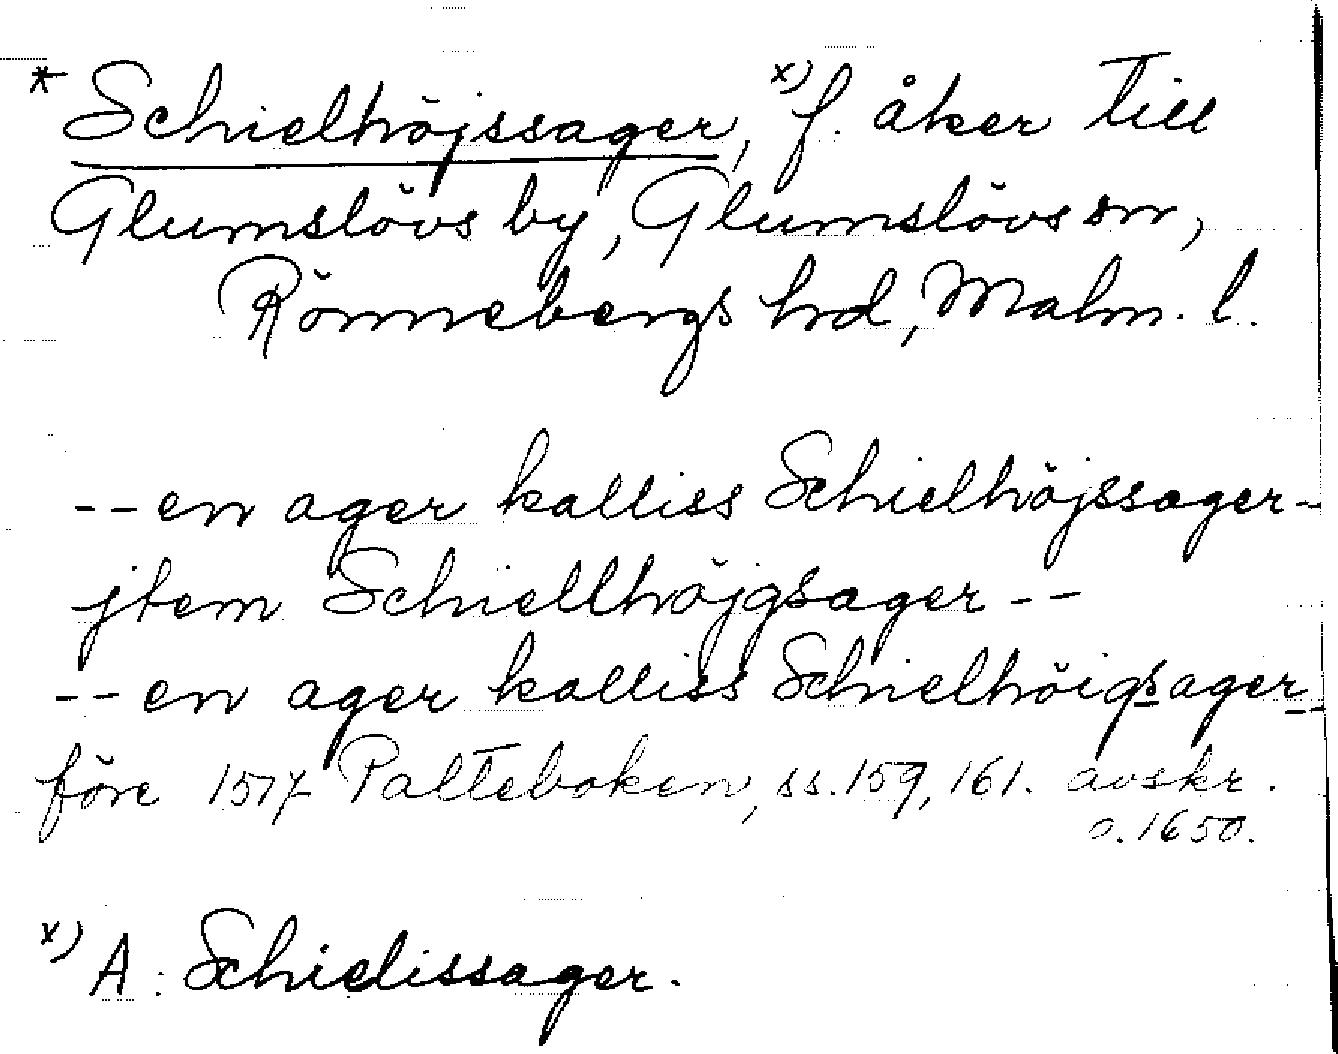 * Schielhöjssager, x) f. åker till
Glumslövs by, Glumslövs sn,
Rönnebergs hrd, Malm. l.
-- en ager kalliss Schielhöjssager -
jtem Schiellhöjgsager --
-- en ager kalliss Schielhöigsager --
före 1517 Palteboken, ss. 159, 161. avskr.
o. 1650.
x) A: Schielissager.